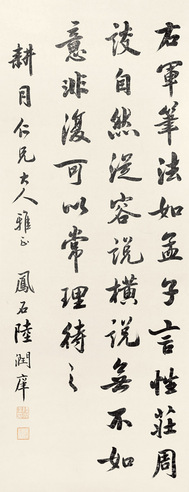 右軍筆法如孟子言性莊周
談自然從容說橫說無不如
意非復可以常理待之
耕月仁兄大人雅正 鳳石陸潤庠